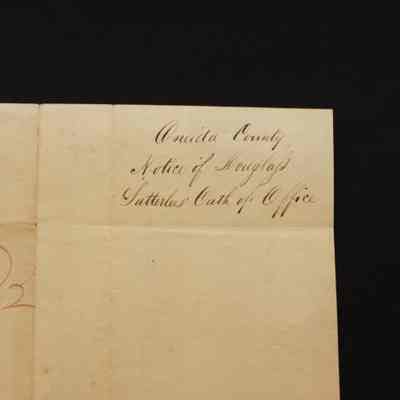 Oneida County
Notice of Douglass
Sutterlus Oath of Office
2